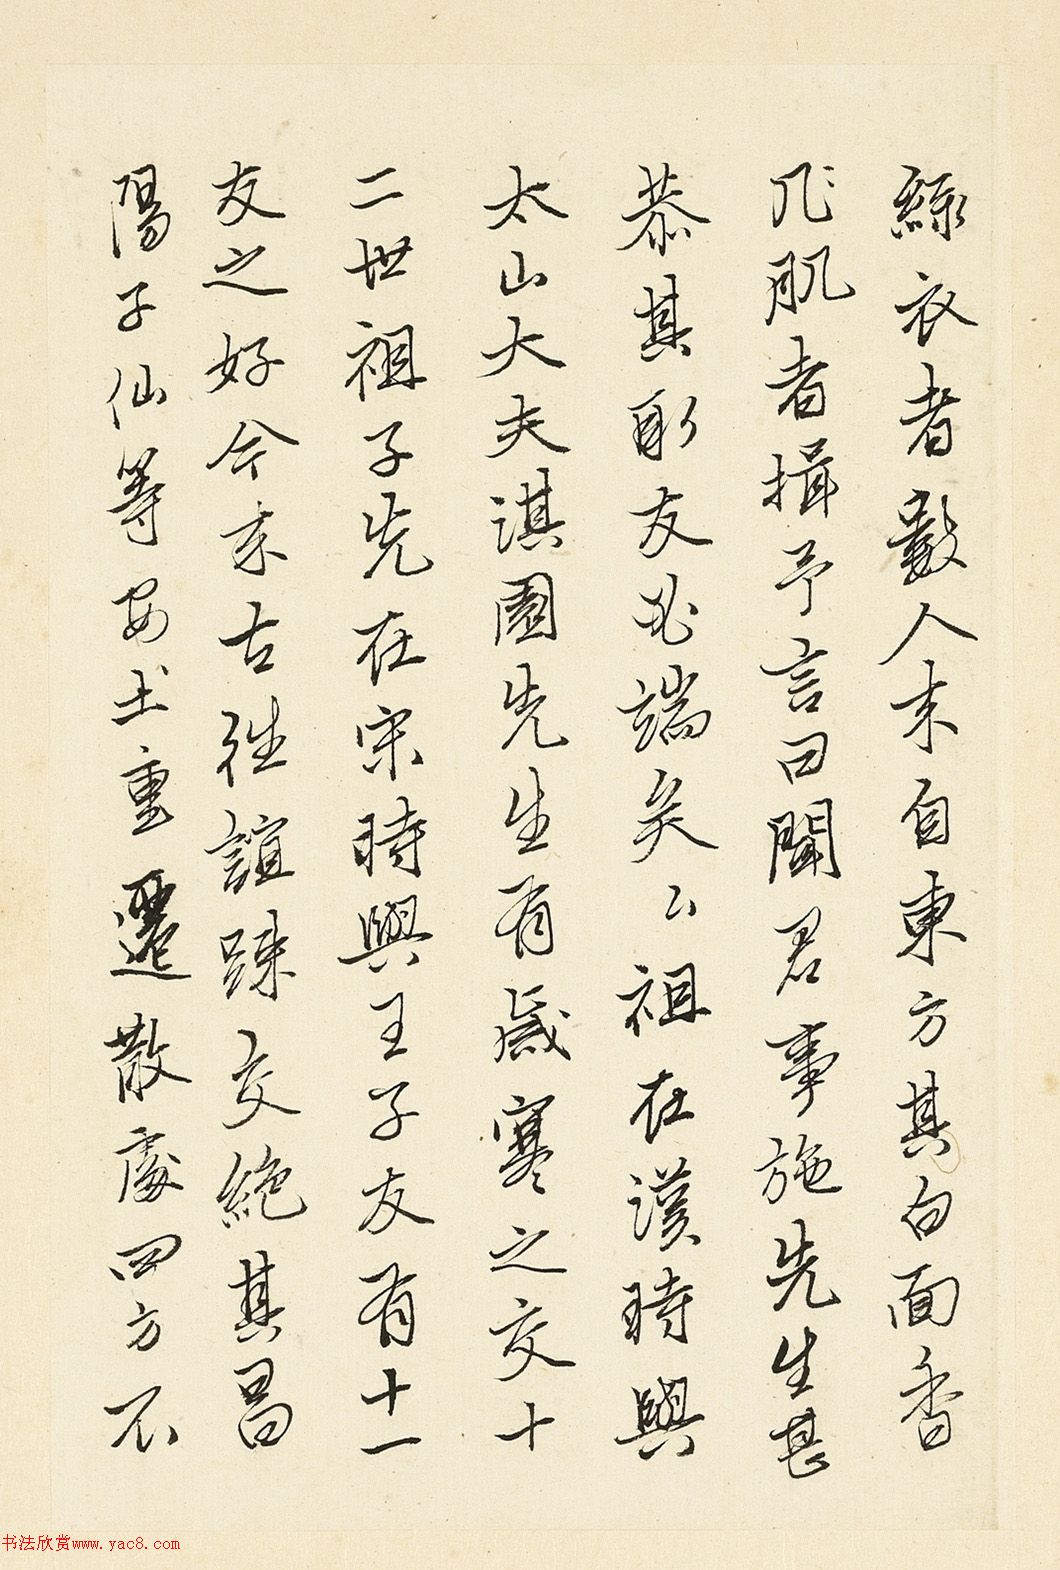 綠衣者數人來自東方其白面香
肌者揖予言曰聞君事施先生甚
恭其取友必端矣公祖在漢時與
太山大夫淇園先生有歲寒之交十
二世祖子先在宋時與王子友有十一
友之好今來古往誼踈交絕其昌
陽子仙等安土重遷散處四方不
书法欣赏www.yac8.com